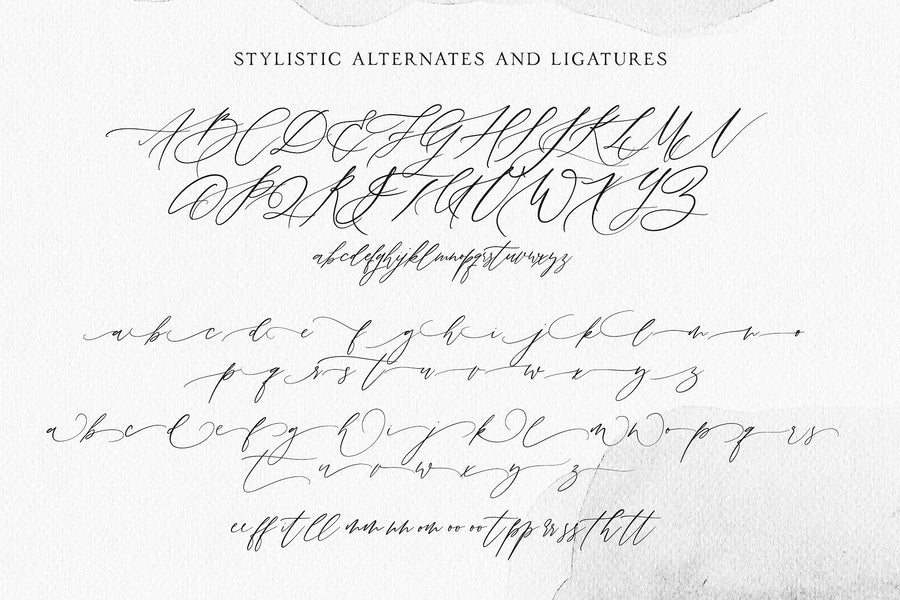 STYLISTIC ALTERNATES AND LIGATURES
A B C D E F G H I J K L M N
O P Q R S T U V W X Y Z
abcdefghijklmnopqrstuvwxyz
a b c d e f g h i j k l m n o
p q r s t u v w x y z
a b c d e f g h i j k l m n o p q r s
t u v w x y z
ee ff it ll mm nn om oo ot pp rr ss th tt